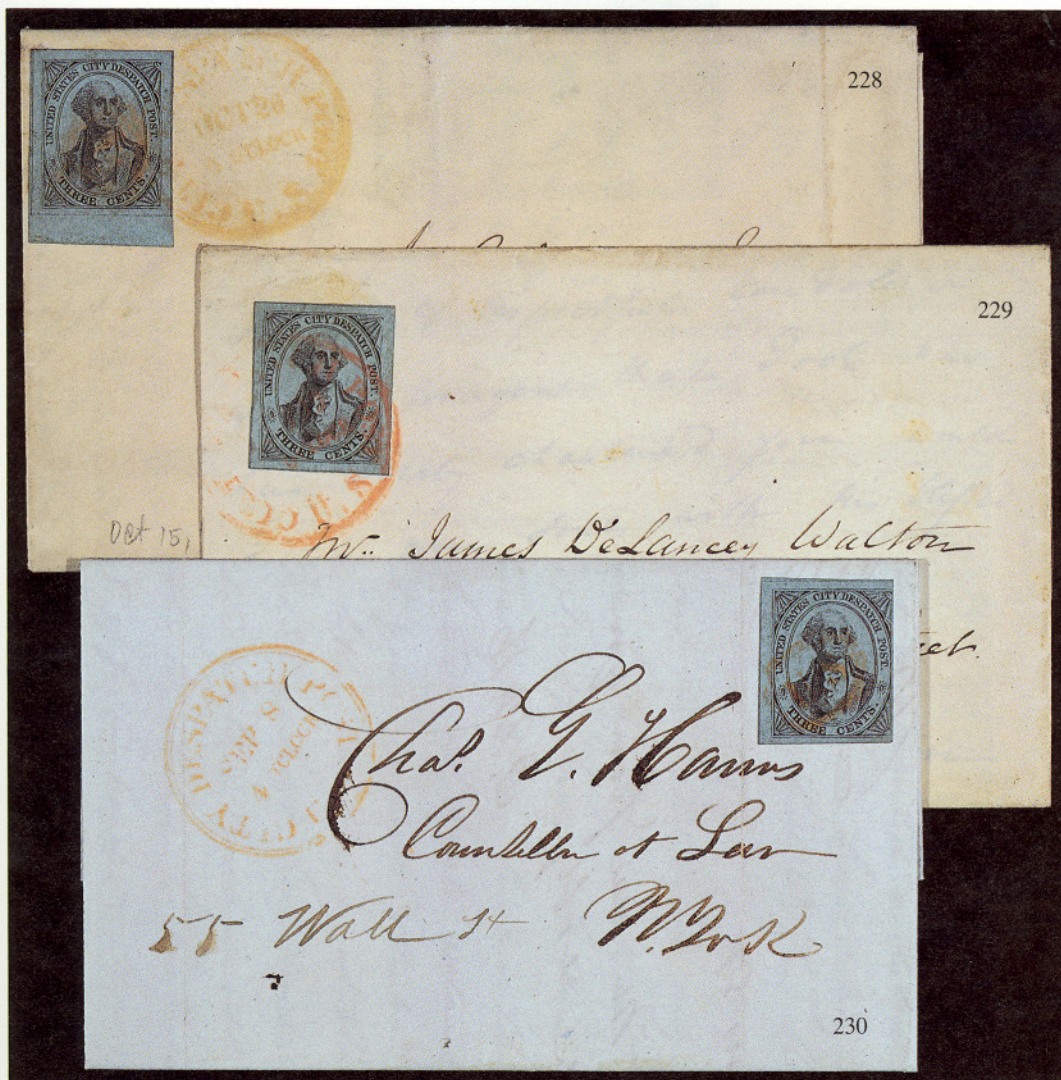 228
UNITED STATES CITY DESPATCH POST.
THREE CENTS.
DESPATCH POST
OCT 26
O'CLOCK
U.S. CITY
Oct 15,
229
UNITED STATES CITY DESPATCH POST.
THREE CENTS.
U.S. CITY
James DeLancey Walton
UNITED STATES CITY DESPATCH POST.
THREE CENTS.
U.S. CITY DESPATCH POST
SEP 9.
4 O'CLOCK
Chas. G. Harris
Counsellor at Law
55 Wall St N. York
230